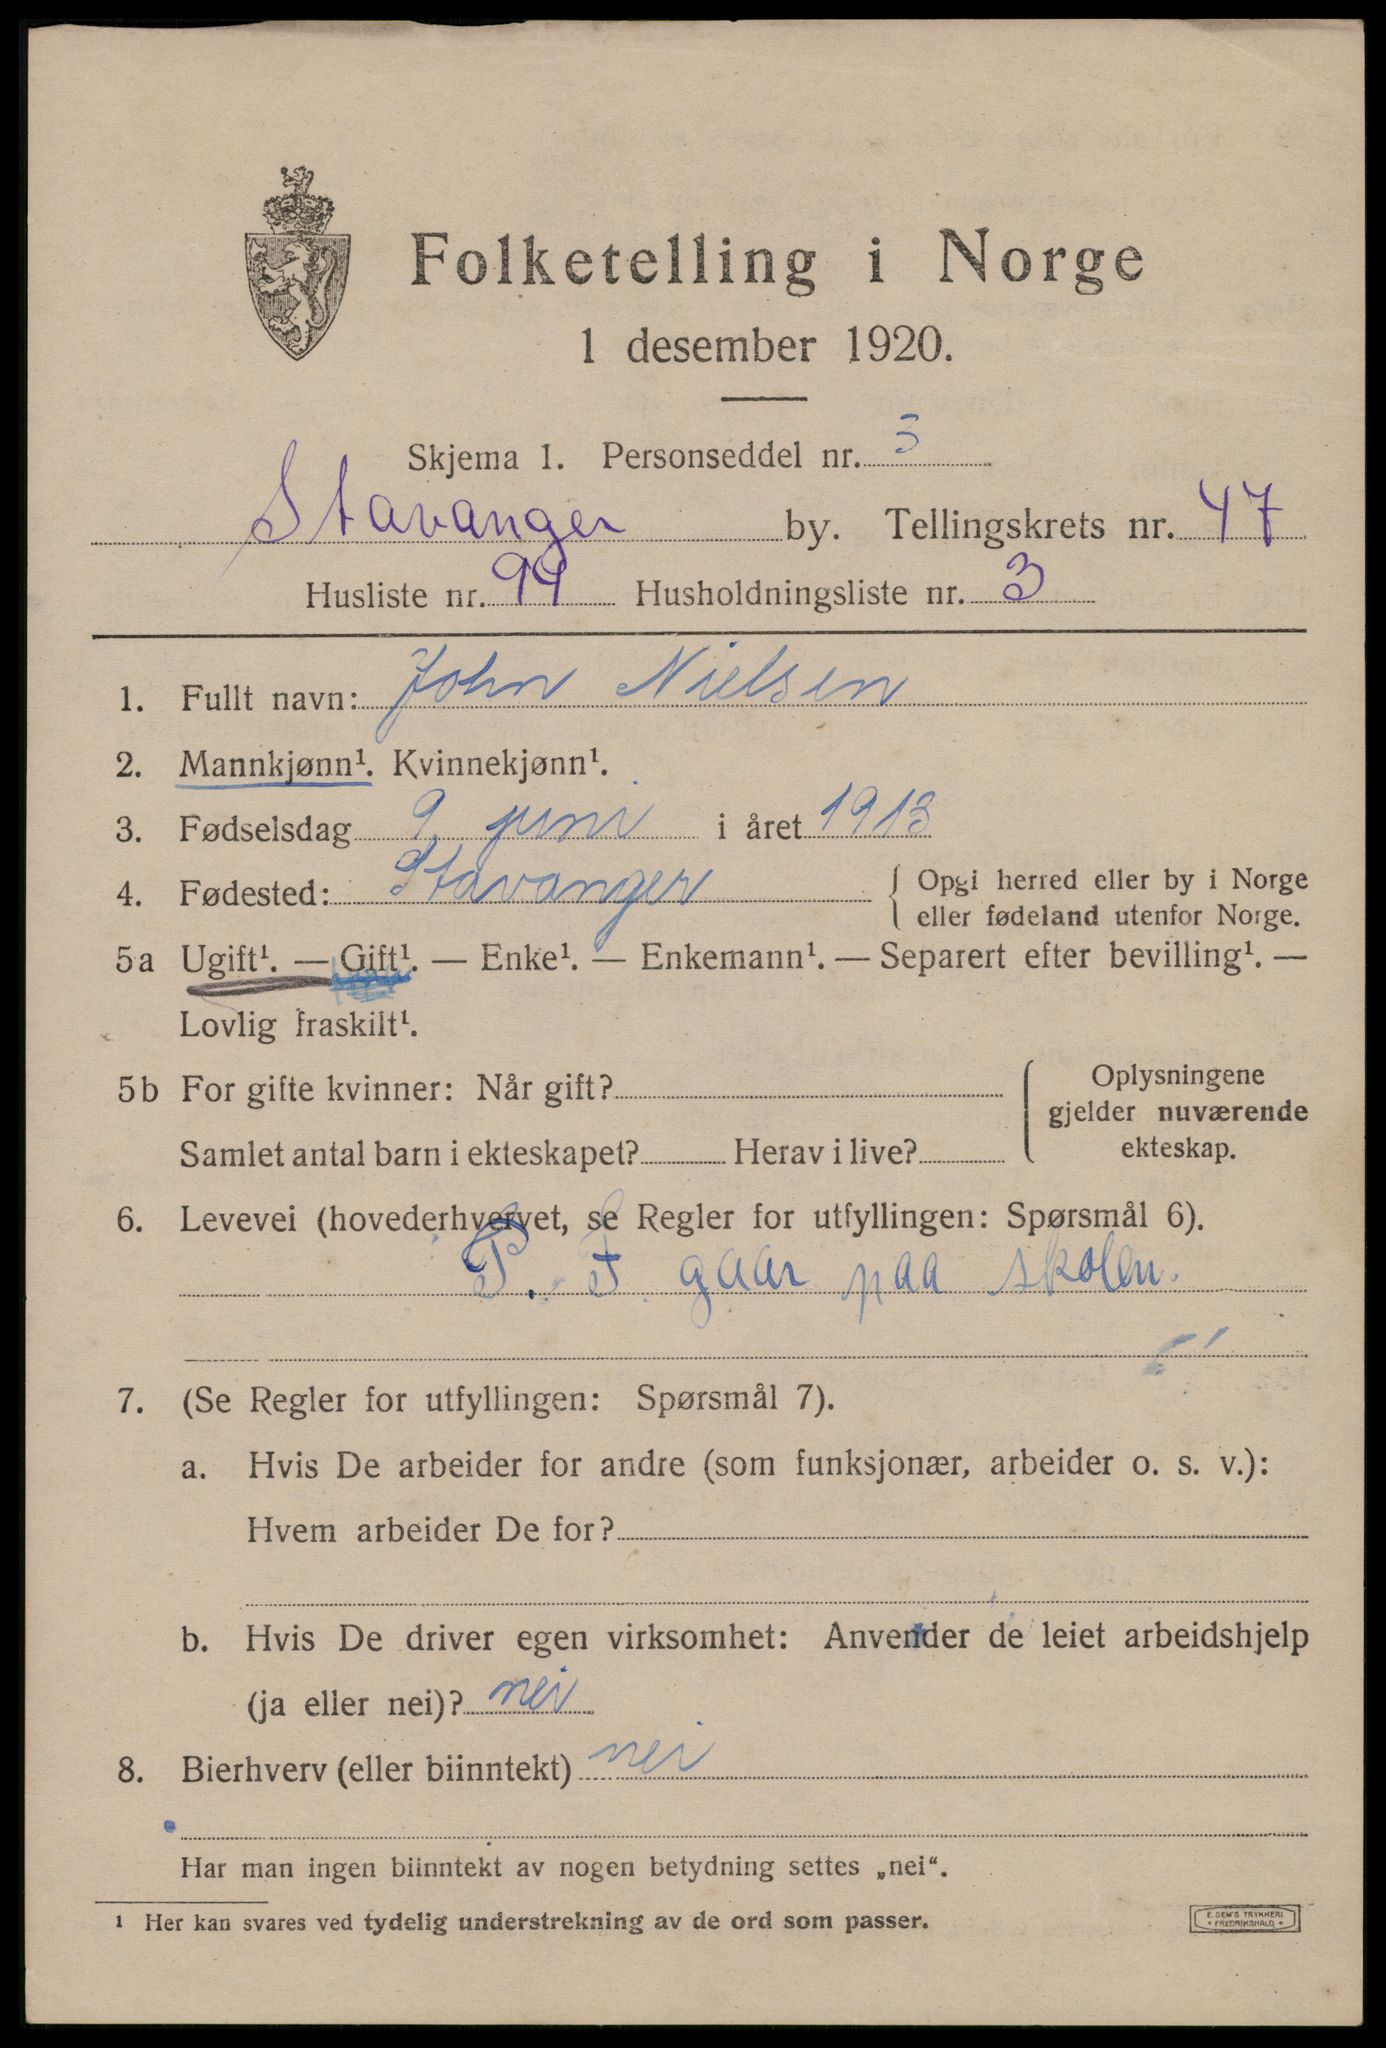 Folketelling i Norge
1 desember 1920.
Skjema 1. Personseddel nr. 3
Stavanger by. Tellingskrets nr. 47
Husliste nr. 94 Husholdningsliste nr. 3
1. Fullt navn: John Nielsen
2. Mannkjønn¹. Kvinnekjønn¹.
3. Fødselsdag 9 juni i året 1913
4. Fødested: Stavanger { Opgi herred eller by i Norge
eller fødeland utenfor Norge.
5a Ugift¹. — Gift¹. — Enke¹. — Enkemann¹. — Separert efter bevilling¹. —
Lovlig fraskilt¹.
5b For gifte kvinner: Når gift? { Oplysningene
gjelder nuværende
Samlet antal barn i ekteskapet? Herav i live? ekteskap.
6. Levevei (hovederhvervet, se Regler for utfyllingen: Spørsmål 6).
P. F gaar paa skolen.
7. (Se Regler for utfyllingen: Spørsmål 7).
a. Hvis De arbeider for andre (som funksjonær, arbeider o. s. v.):
Hvem arbeider De for?
b. Hvis De driver egen virksomhet: Anvender de leiet arbeidshjelp
(ja eller nei)? nei
8. Bierhverv (eller biinntekt) nei
Har man ingen biinntekt av nogen betydning settes „nei“.
¹ Her kan svares ved tydelig understrekning av de ord som passer.
E. SEM'S TRYKKERI
• FREDRIKSHALD •